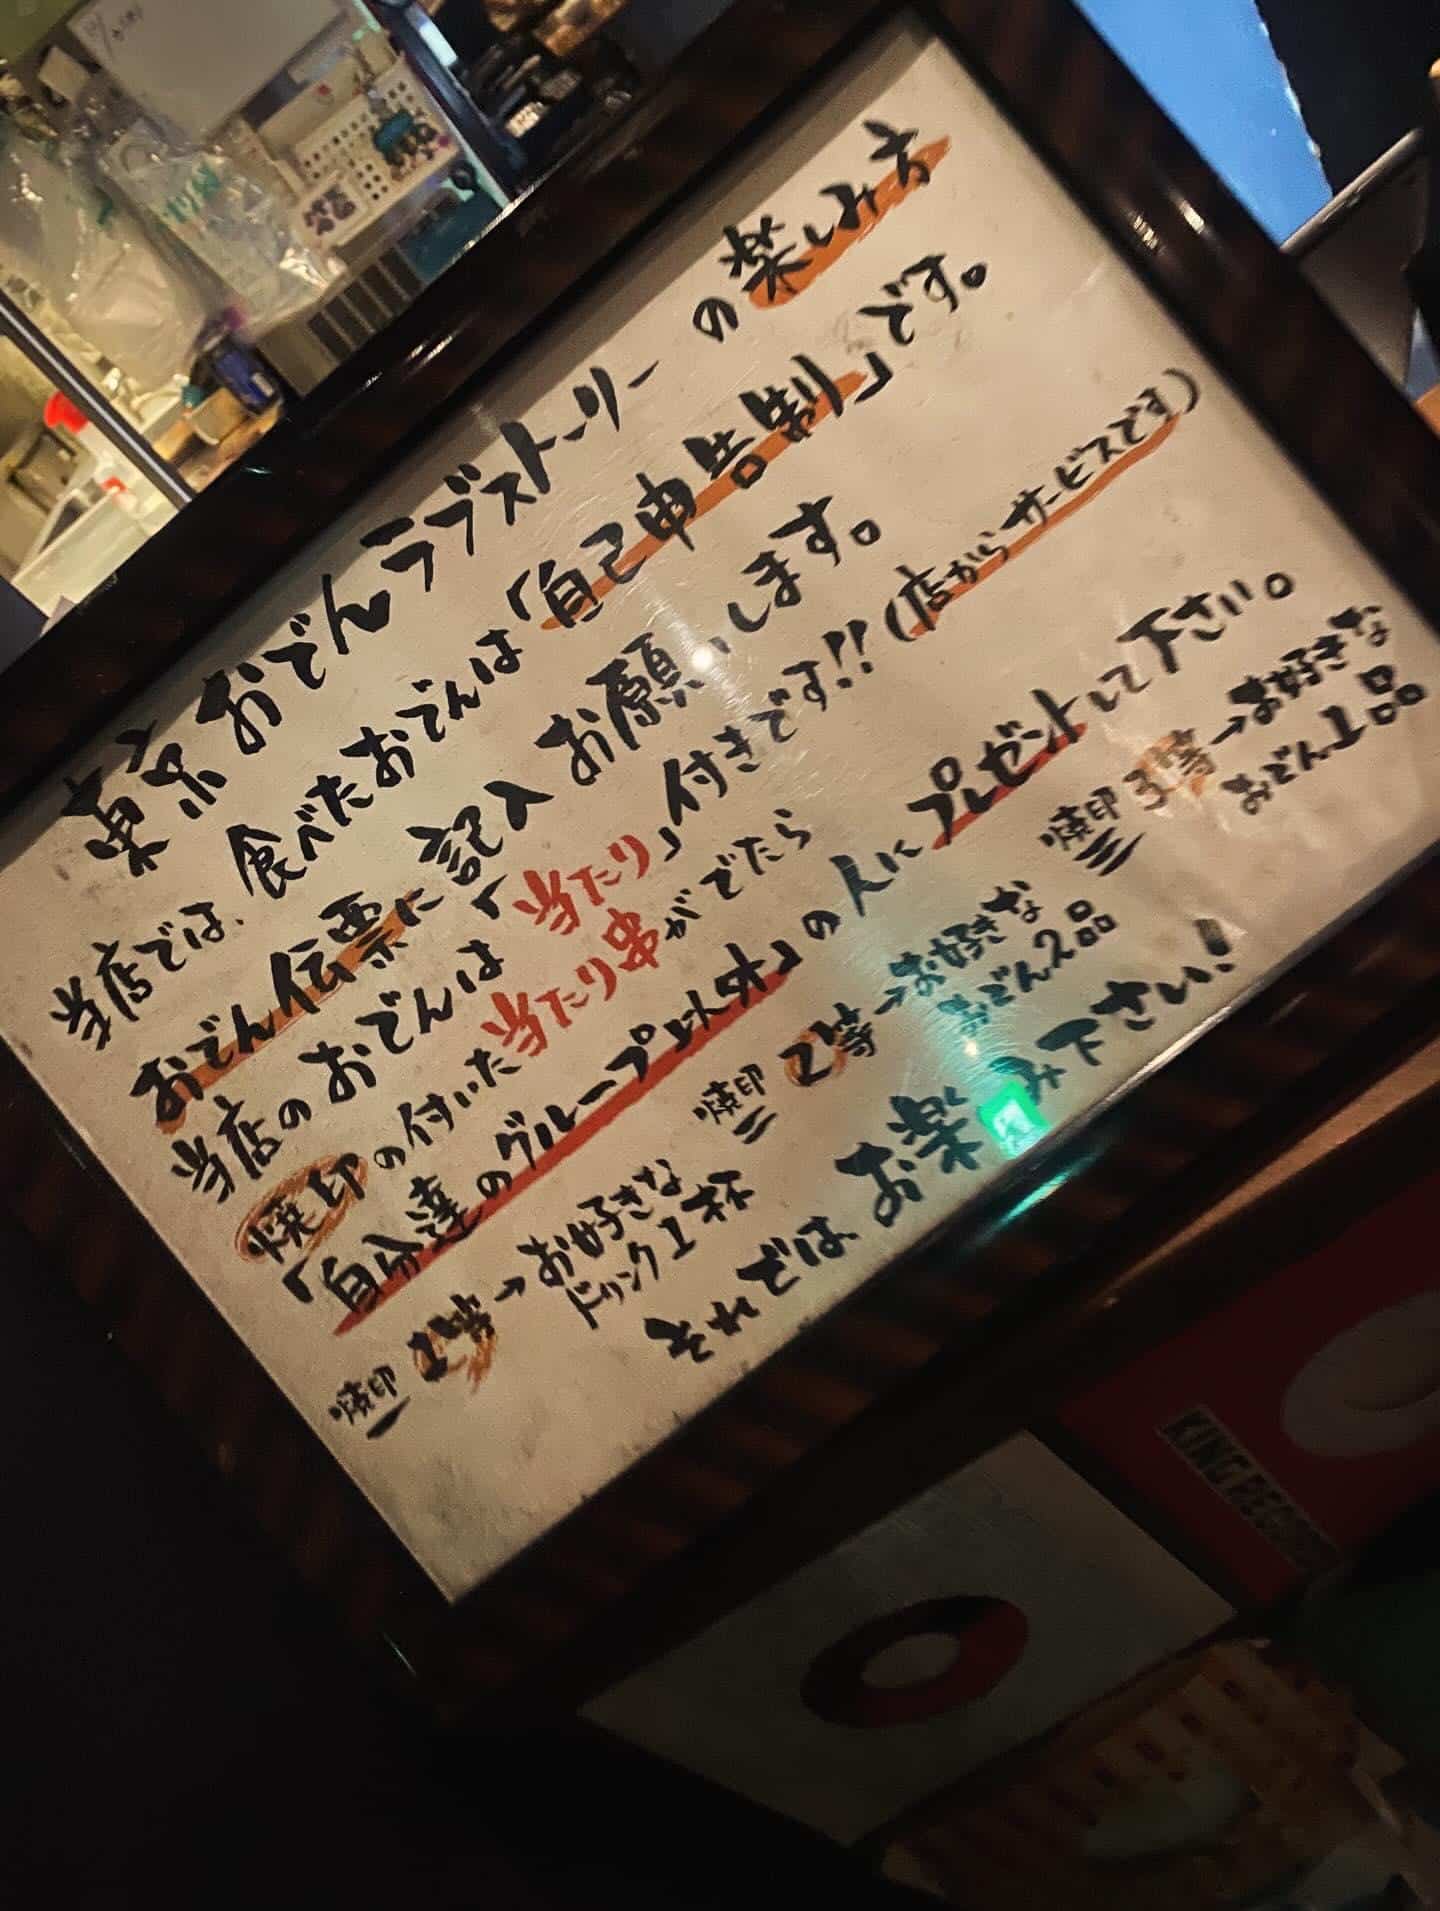 東京おでんラブストーリーの楽しみ方
当店では、食べたおでんは「自己申告制」です。
おでん伝票に記入お願いします。
当店のおでんは「当たり」付きです!!(店からサービスです)
焼印の付いた当たり串がでたら
「自分達のグループ以外」の人にプレゼントして下さい。
焼印 1等→お好きな
ドリンク1杯
焼印 2等→お好きな
おでん2品
焼印 3等→お好きな
おでん1品
それではお楽しみ下さい!